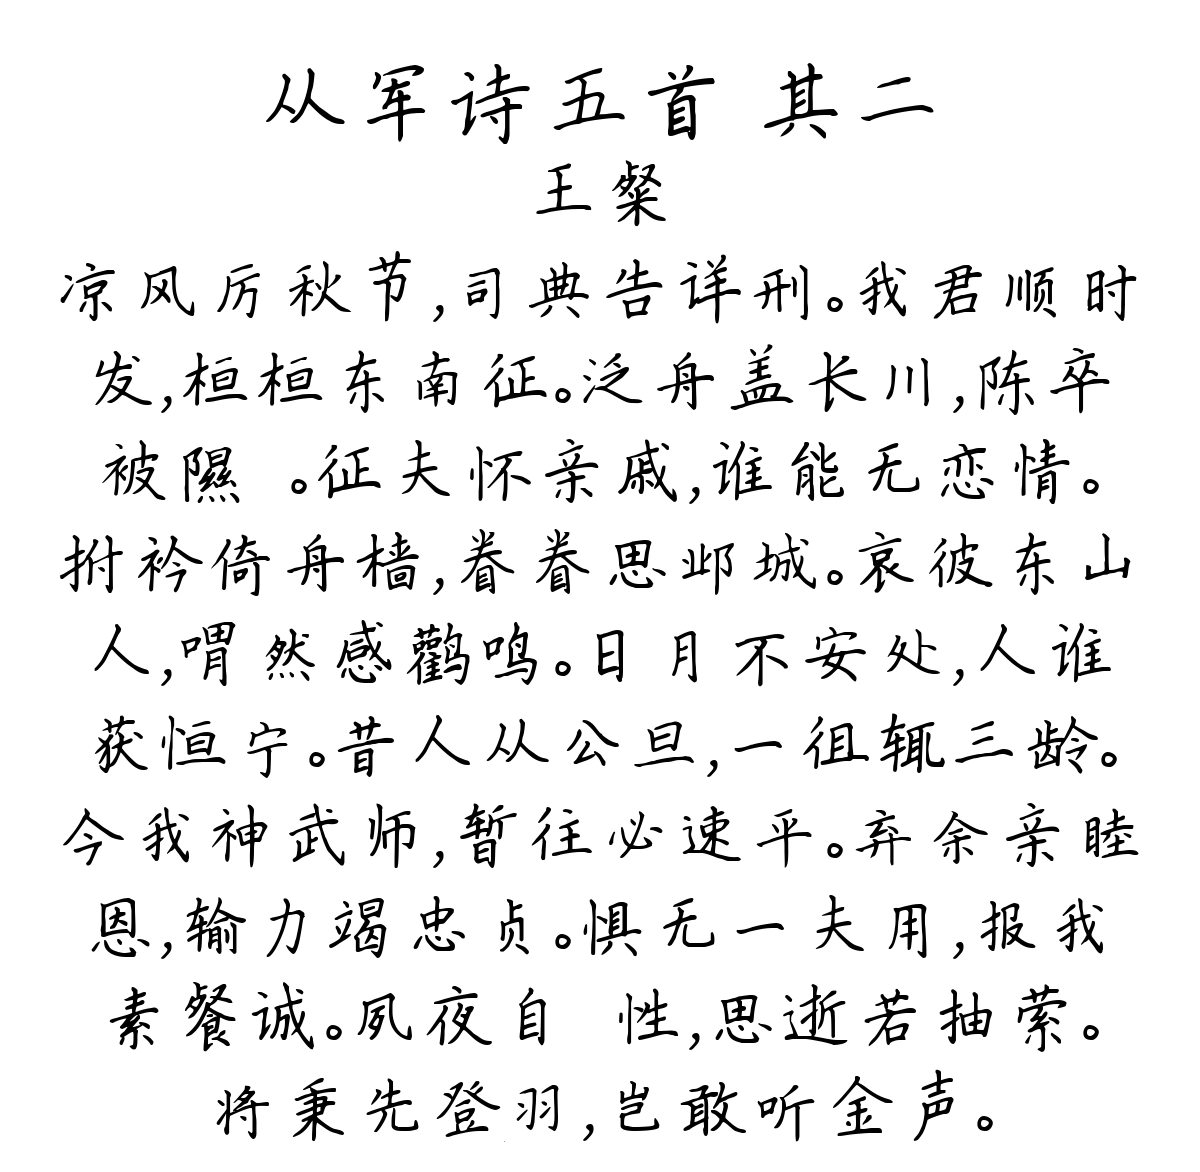 从军诗五首 其二
王粲
凉风厉秋节,司典告详刑。我君顺时
发,桓桓东南征。泛舟盖长川,陈卒
被隰 。征夫怀亲戚,谁能无恋情。
拊衿倚舟樯,眷眷思邺城。哀彼东山
人,喟然感鹳鸣。日月不安处,人谁
获恒宁。昔人从公旦,一徂辄三龄。
今我神武师,暂往必速平。弃余亲睦
恩,输力竭忠贞。惧无一夫用,报我
素餐诚。夙夜自 性,思逝若抽萦。
将秉先登羽,岂敢听金声。